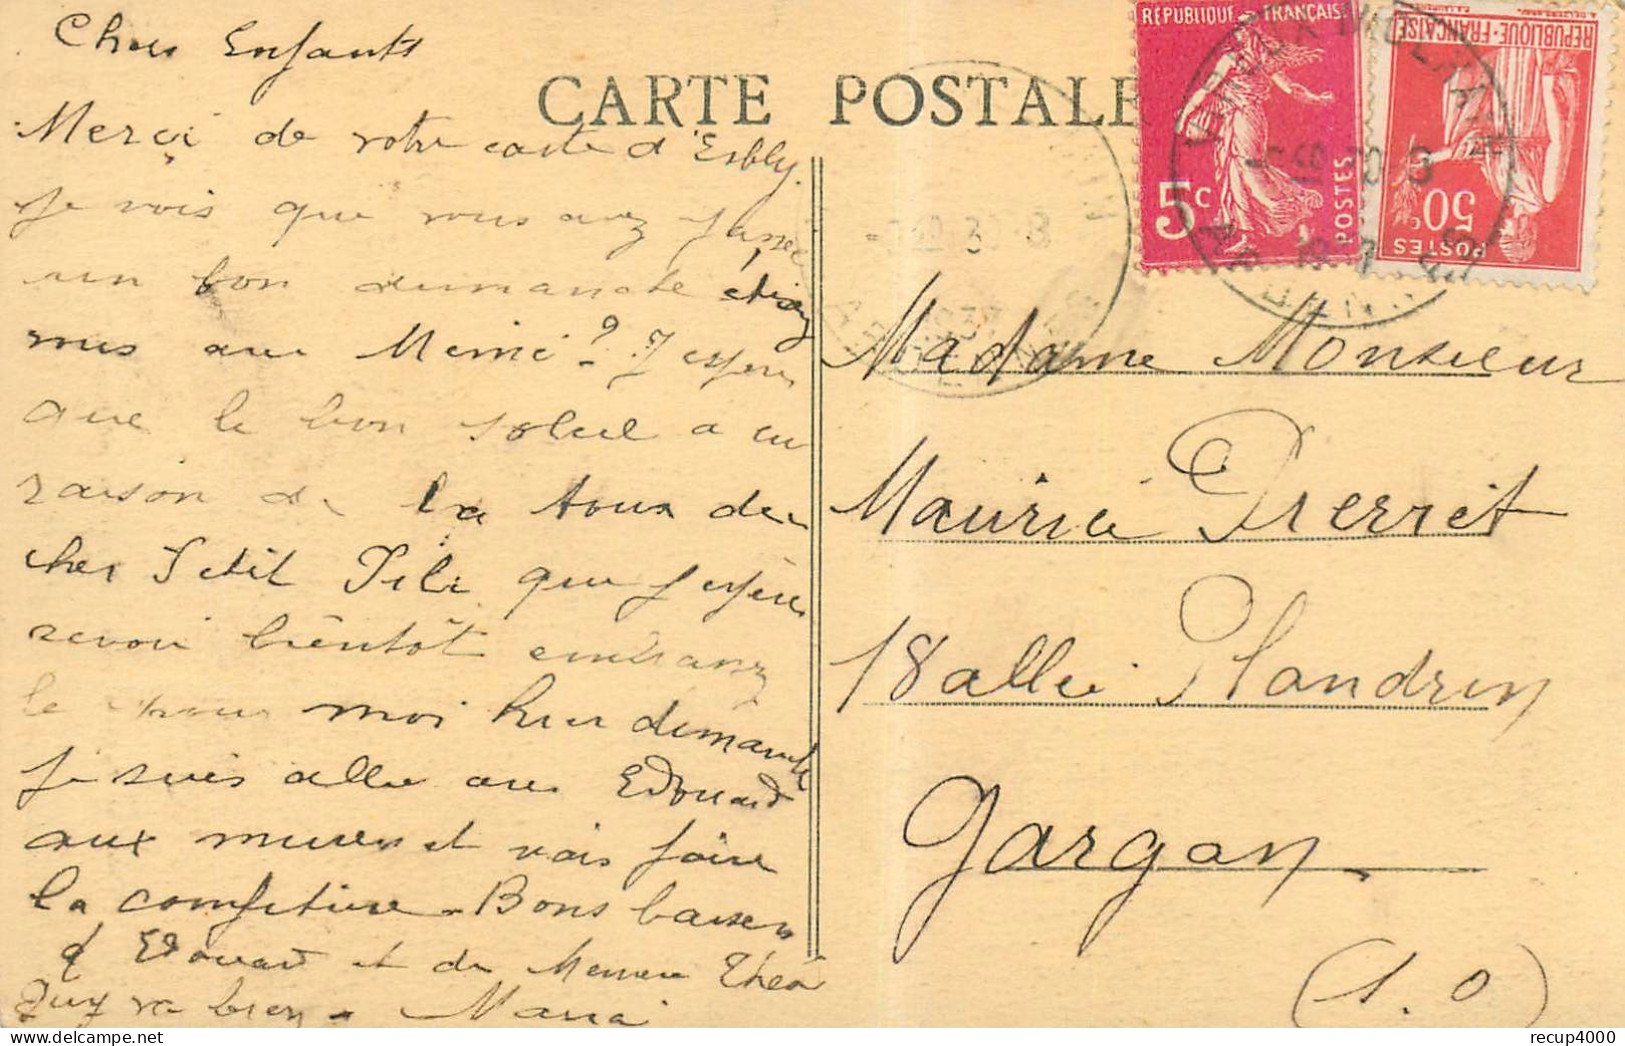 Chers Enfants
CARTE POSTALE
Merçi de votre carte d'Esbly.
Je vois que vous avez passé
un bon dimanche étiez
vous avec Mémé? J'espère
que le bon soleil a eu
raison de la toux de
cher Petit Pili que j'espère
revoir bientôt embrassez
le pour moi hier dimanche
je suis allée avec Edouard
aux mures et vais faire
la confiture. Bons baisers
d'Edouard et de Memere Théa
Guy va bien. Maria
RÉPUBLIQUE FRANÇAISE
5c
POSTES
REPUBLIQUE FRANÇAISE
50c
POSTES
VIREUX-MOLHAIN
ARDENNES
1937
Madame Monsieur
Maurice Pierret
18 allée Plandrin
Gargan
(S.O)
recup4000